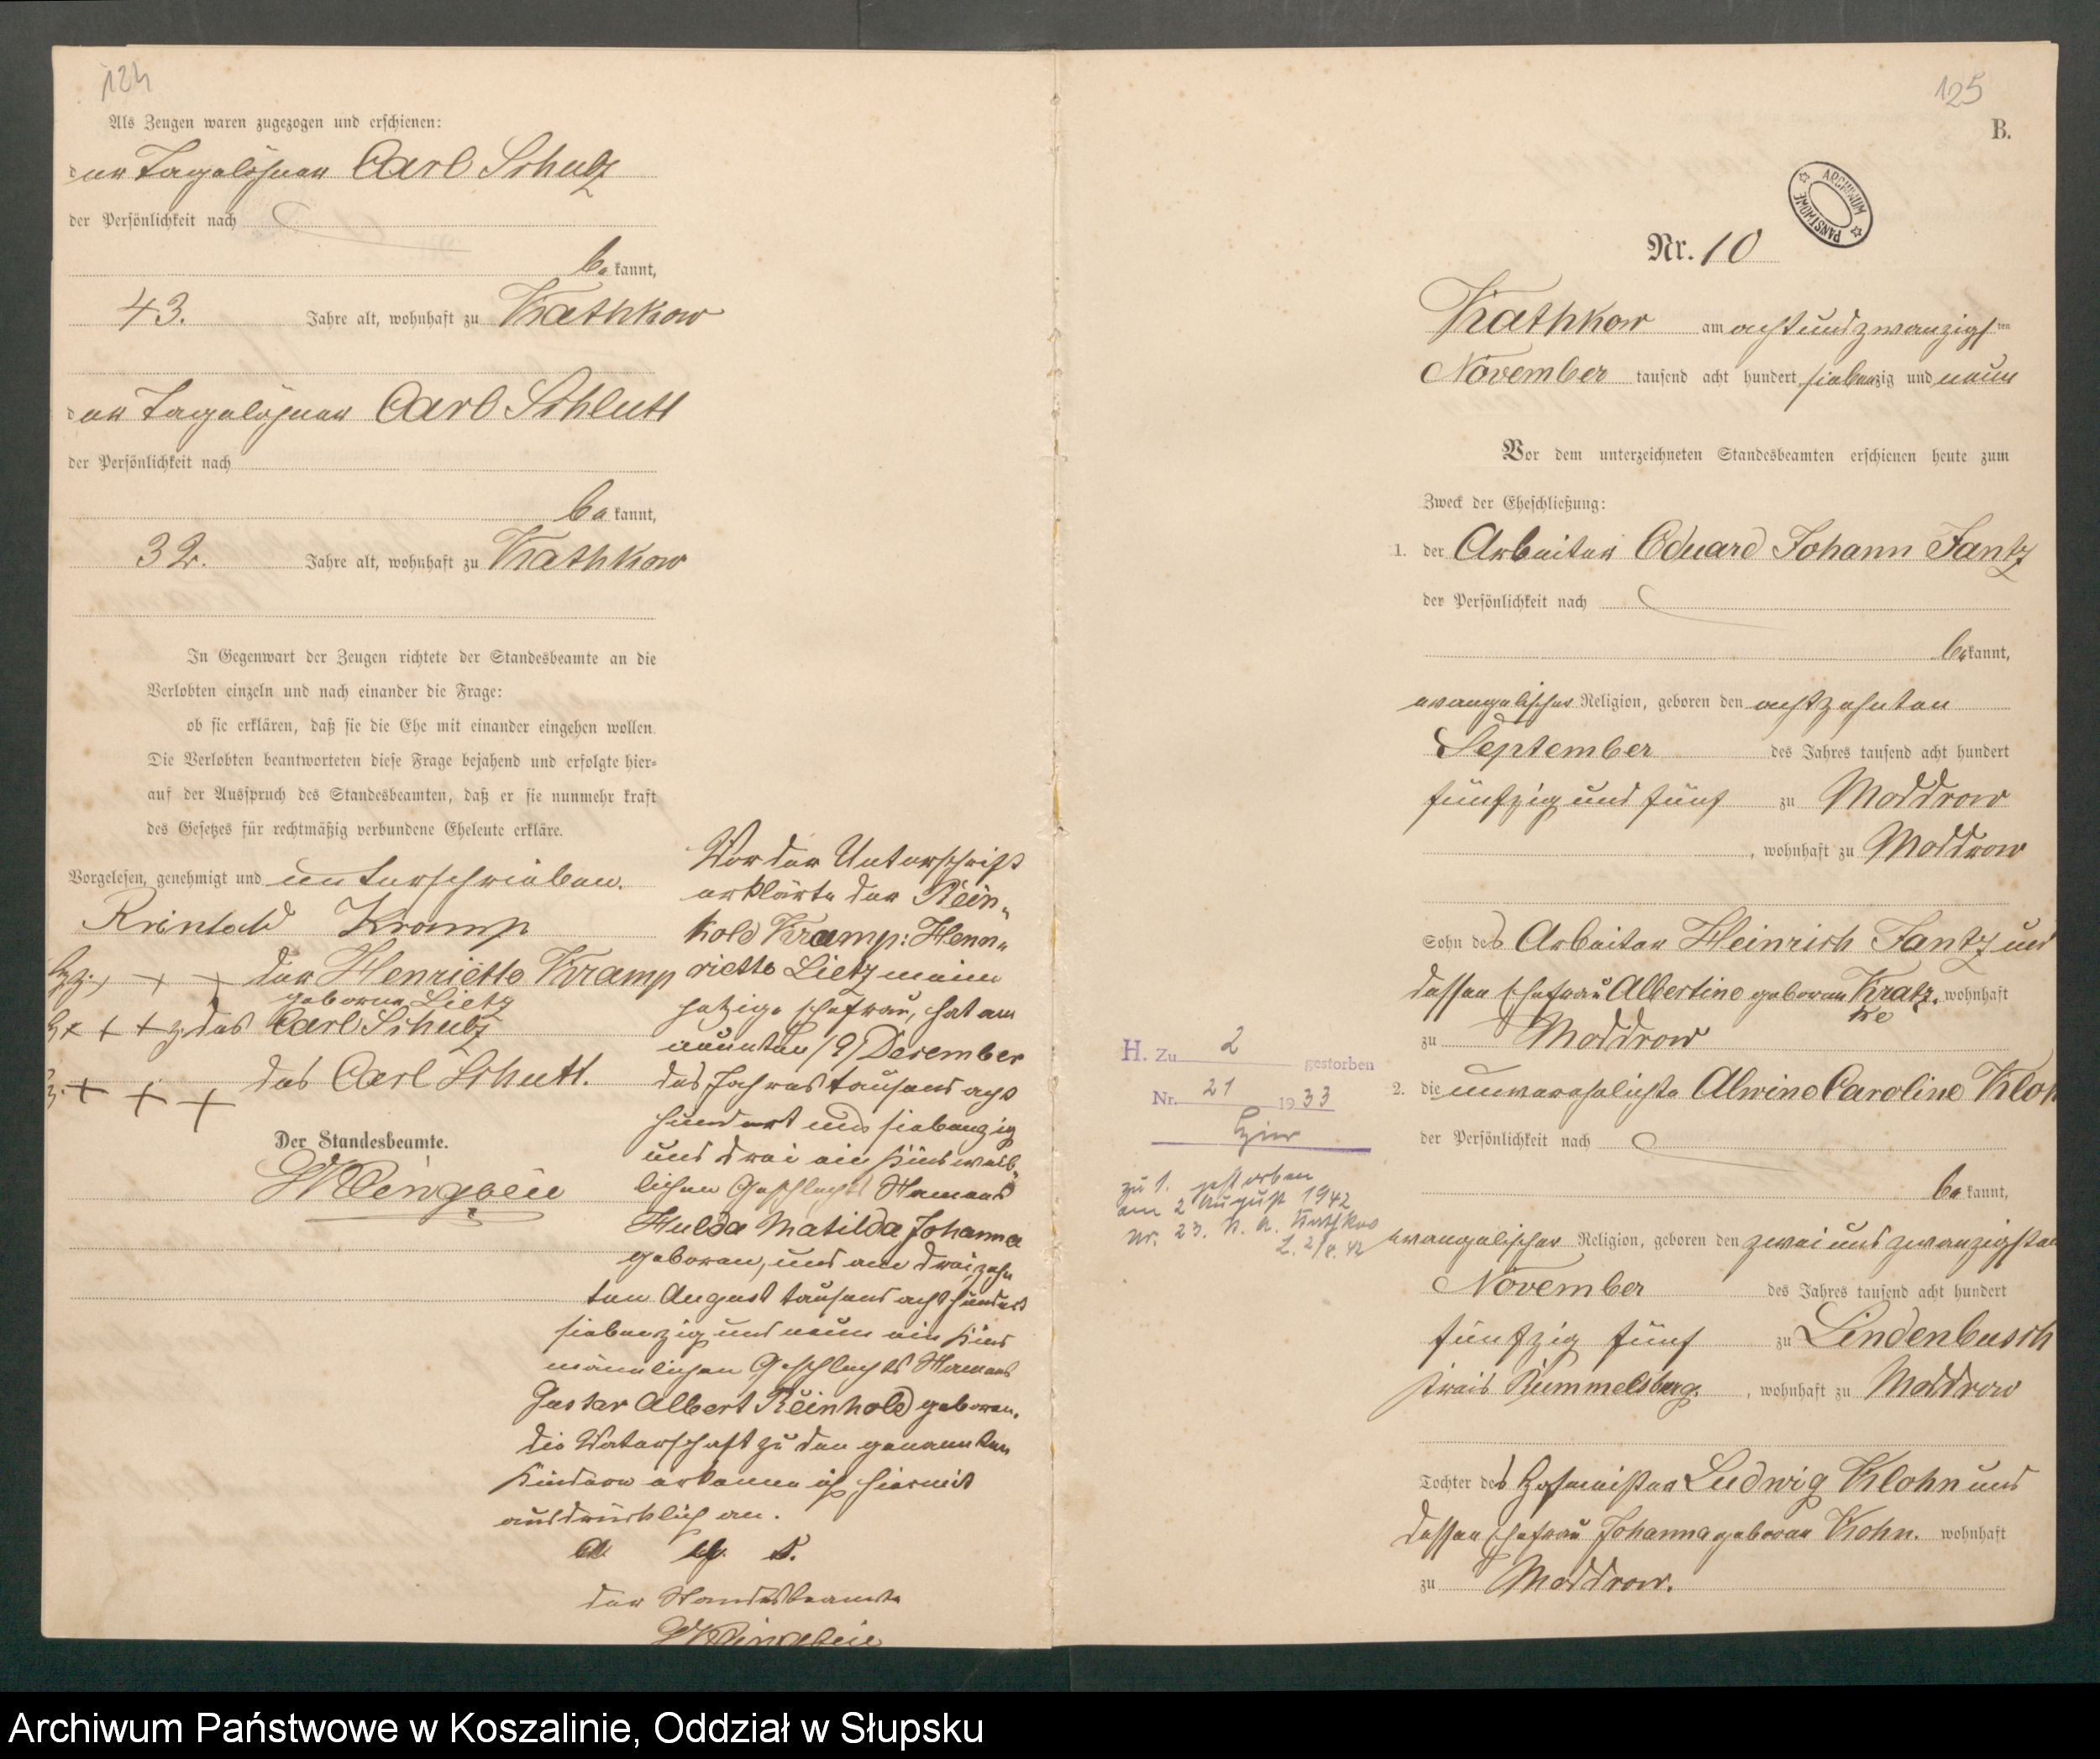 124
Als Zeugen waren zugezogen und erschienen:
der Tagelöhner Carl Schulz
der Persönlichkeit nach
be kannt,
43. Jahre alt, wohnhaft zu Kathkow
der Tagelöhner Carl Schlutt
der Persönlichkeit nach
be kannt,
32. Jahre alt, wohnhaft zu Kathkow
In Gegenwart der Zeugen richtete der Standesbeamte an die
Verlobten einzeln und nach einander die Frage:
ob sie erklären, daß sie die Ehe mit einander eingehen wollen.
Die Verlobten beantworteten diese Frage bejahend und erfolgte hier-
auf der Ausspruch des Standesbeamten, daß er sie nunmehr kraft
des Gesetzes für rechtmäßig verbundene Eheleute erkläre.
Vorgelesen, genehmigt und unterschrieben.
Reinhold Kramp
+ + der Henriette Kramp
geborene Lietz
+ + + des Carl Schulz
+ + + des Carl Schutt.
Der Standesbeamte.
Vor der Unterschrift
erklärte der Rein-
hold Kramp: Henn-
riette Lietz meine
jetzige Ehefrau, hat am
neunten /9/ Desember
des Jahres tausend acht
hundert und siebenzig
und drei ein Kind weib-
lichen Geschlechts Namens
Hulda Matilda Johanna
geboren, und am dreizehn
ten August tausend acht hundert
siebenzig und neun ein Kind
männlichen Geschlechts Namens
Gustav Albert Reinhold geboren.
Die Vaterschaft zu den genannten
Kindern erkenne ich hiermit
ausdrücklich an.
der Standesbeamte
125
B.
ARCHIWUM PAŃSTWOWE
Nr. 10
Kathkow am achtundzwanzigs ten
November tausend acht hundert siebenzig und neun
Vor dem unterzeichneten Standesbeamten erschienen heute zum
Zweck der Eheschließung:
1. der Arbeiter Eduard Johann Fantz
der Persönlichkeit nach
be kannt,
evangelischer Religion, geboren den achtzehnten
September des Jahres tausend acht hundert
fünfzig und fünf zu Moddrow
, wohnhaft zu Moddrow
Sohn des Arbeiter Heinrich Fantz und
dessen Ehefrau Albertine geboren Kratz. wohnhaft
Ke
zu Moddrow
2. die unverehelichte Alwine Caroline Kloh
der Persönlichkeit nach
be kannt,
evangelischer Religion, geboren den zwei und zwanzigsten
November des Jahres tausend acht hundert
fünfzig fünf zu Lindenbusch
Kreis Rummelsburg. , wohnhaft zu Moddrow
Tochter des Hofmeister Ludwig Klohn und
dessen Ehefrau Johanna geboren Kohn. wohnhaft
zu Moddrow.
H. Zu 2 gestorben
Nr. 21 1933
zu 1. gestorben
am 2 August 1942
Nr. 23. St. A. Kathkow
L. 2/8. 42
Archiwum Państwowe w Koszalinie, Oddział w Słupsku